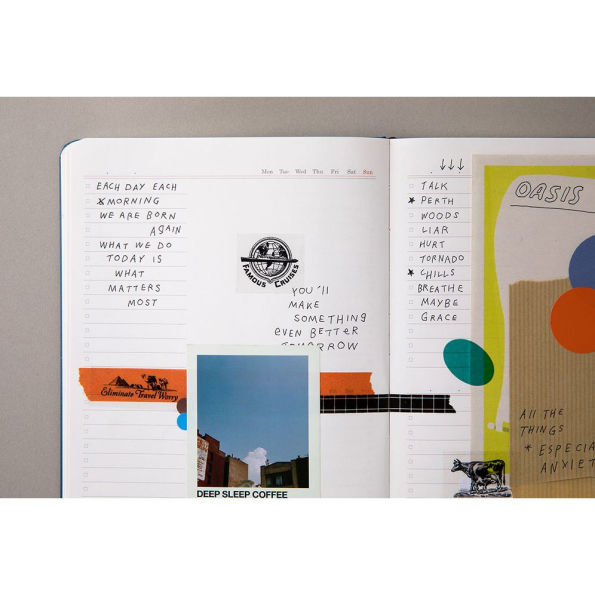 Mon Tue Wed Thu Fri Sat Sun
EACH DAY EACH
MORNING
WE ARE BORN
AGAIN
WHAT WE DO
TODAY IS
WHAT
MATTERS
MOST
FAMOUS CRUISES
YOU'll
MAKE
SOMETHING
EVEN BETTER
TOMORROW
Eliminate Travel Worry
DEEP SLEEP COFFEE
↓↓↓
TALK
★ PERTH
WOODS
LIAR
HURT
TORNADO
★ CHILLS
BREATHE
MAYBE
GRACE
OASIS
All THE
THINGS
* ESPECIA
ANXIET